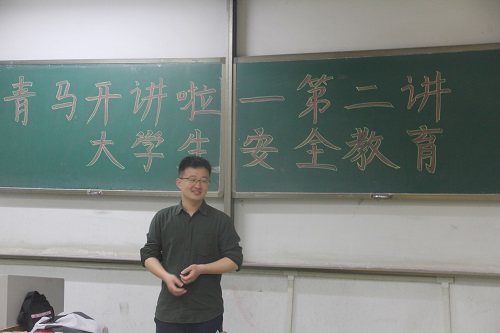 青马开讲啦一第二讲
大学生安全教育